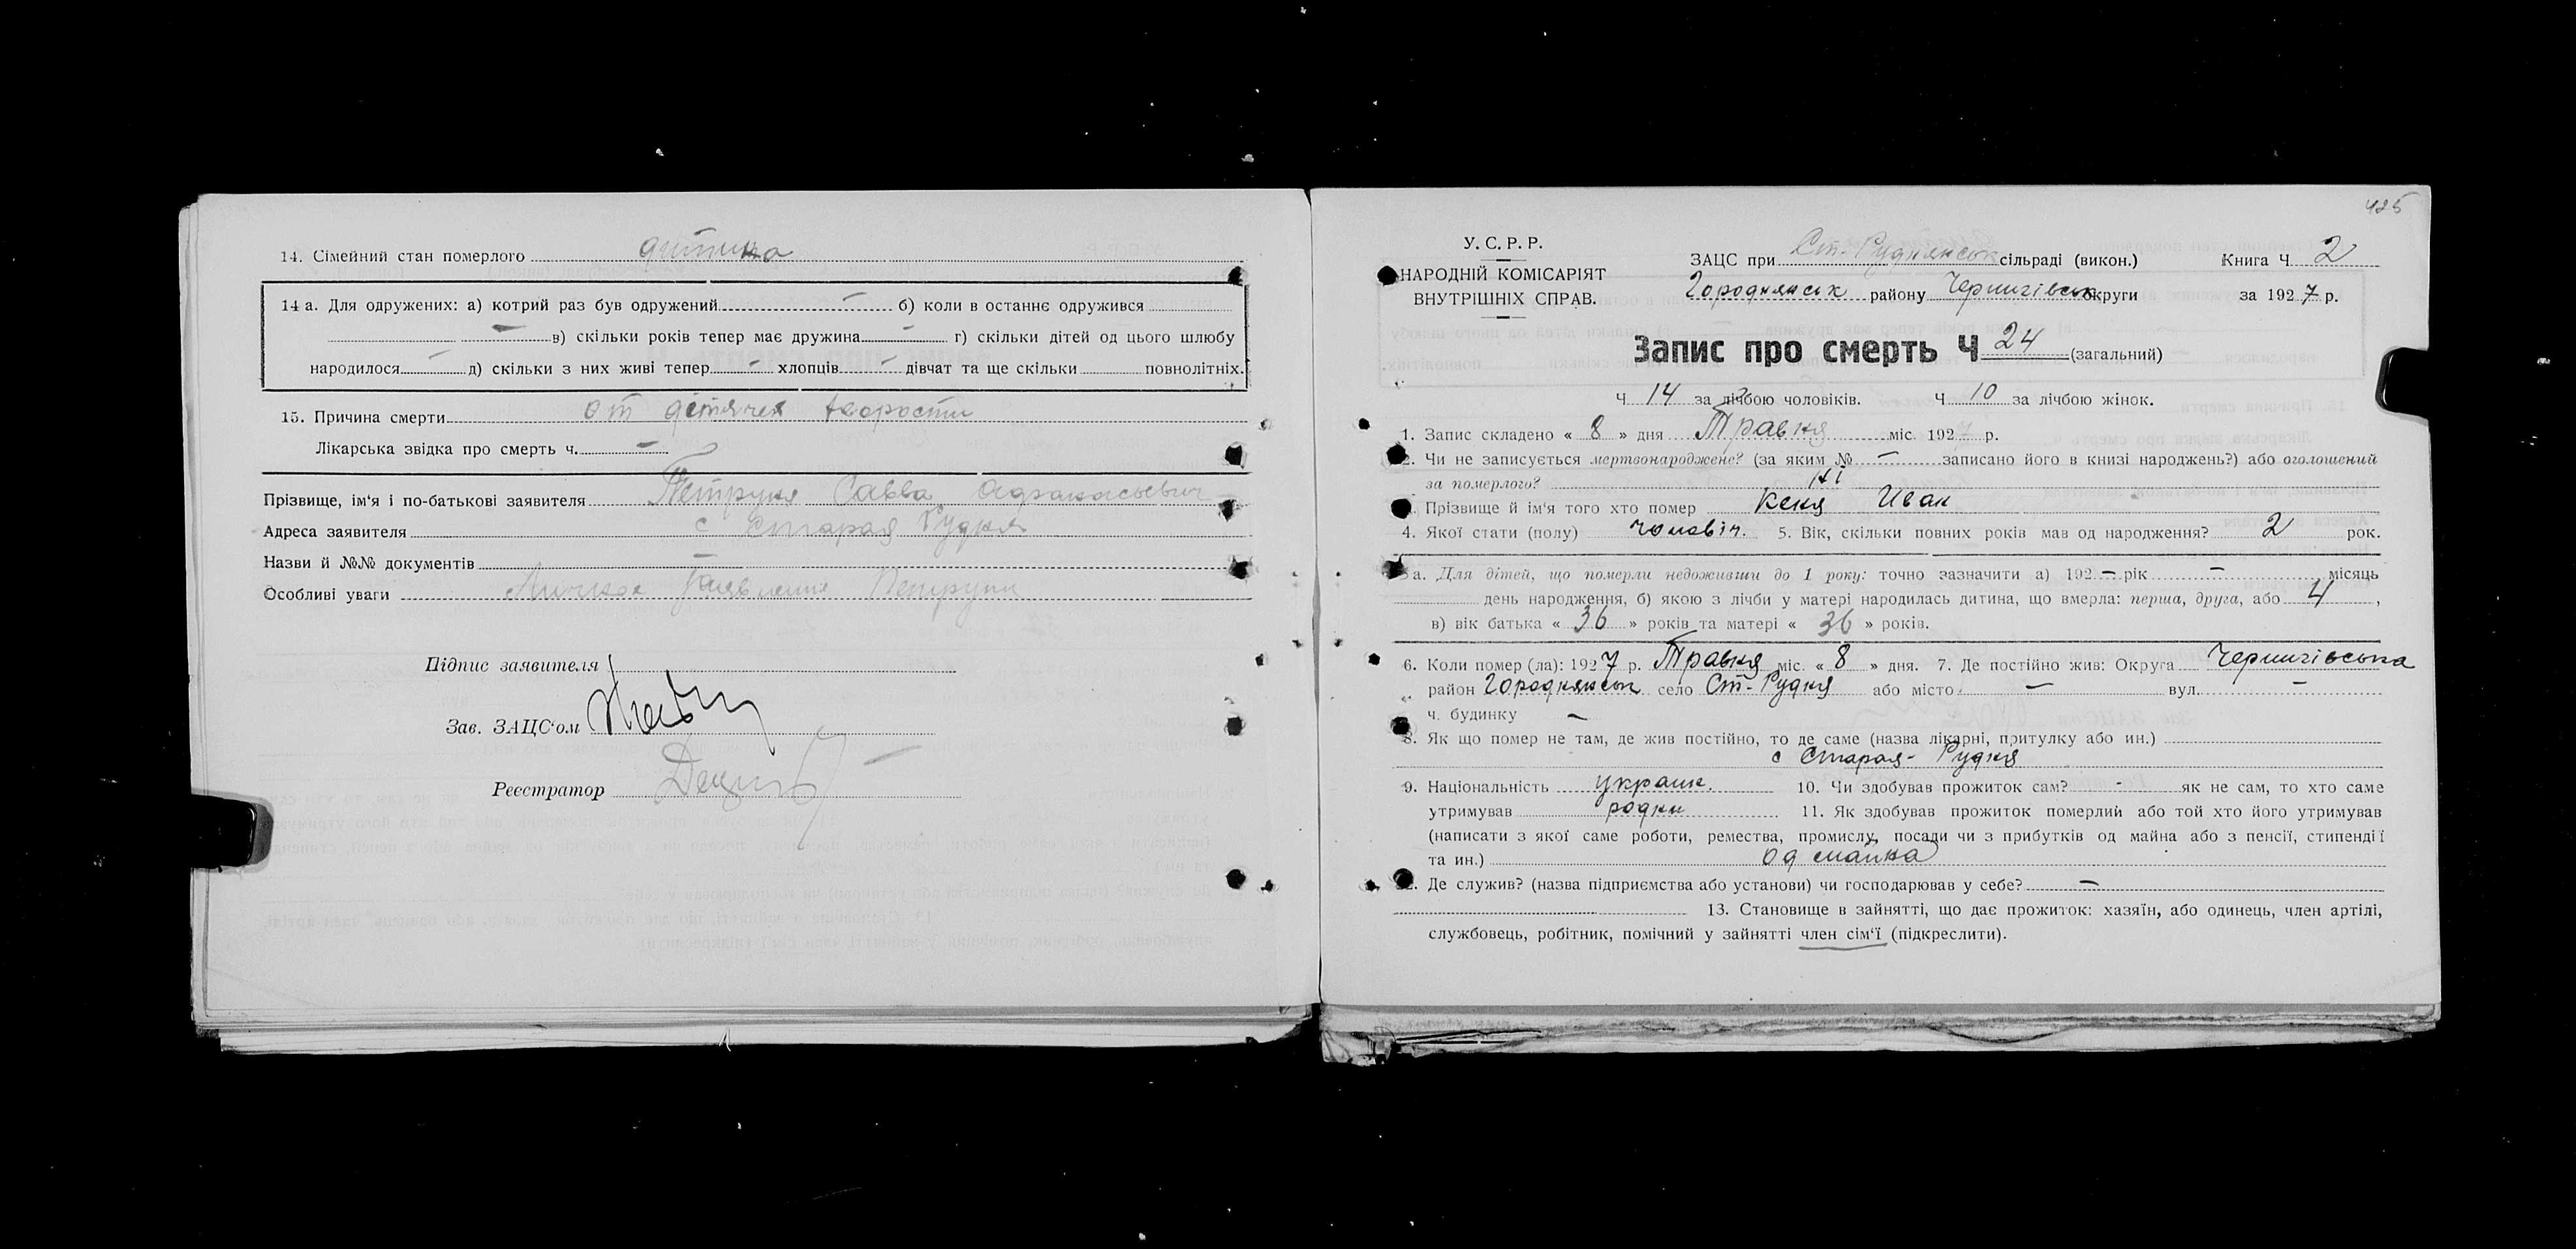 14. Сімейний стан померлого дитина
14 а. Для одружених: а) котрий раз був одружений — б) коли в останнє одружився
— в) скільки років тепер має дружина — г) скільки дітей од цього шлюбу
народилося — д) скільки з них живі тепер — хлопців — дівчат та ще скільки повнолітніх.
15. Причина смерти от дітячея
Лікарська звідка про смерть ч. —
Прізвище, ім'я і по-батькові заявителя Петруня Савва Афанасьевич
Адреса заявителя с Старая Рудня
Назви й №№ документів —
Особливі уваги Личное Заявление Петруни
Підпис заявителя
Зав. ЗАЦС'ом
Реєстратор
425
У. С. Р. Р.
НАРОДНІЙ КОМІСАРІЯТ
ВНУТРІШНІХ СПРАВ.
ЗАЦС при Ст-Руднянськ сільраді (викон.) Книга Ч 2
Городнянськ району Чернигівськ округи за 1927 р.
Запис про смерть Ч 24 (загальний)
Ч 14 за лічбою чоловіків. Ч 10 за лічбою жінок.
1. Запис складено « 8 » дня Травня міс. 1927 р.
2. Чи не записується мертвонароджене? (за яким № — записано його в книзі народжень?) або оголошений
за померлого? Ні
Прізвище й ім'я того хто помер Кеня Иван
4. Якої стати (полу) чоловіч. 5. Вік, скільки повних років мав од народження? 2 рок.
5а. Для дітей, що померли недоживши до 1 року: точно зазначити а) 192 — рік — місяць
день народження, б) якою з лічби у матері народилась дитина, що вмерла: перша, друга, або 4 ,
в) вік батька « 36 » років та матері « 36 » років.
6. Коли помер (ла): 1927 р. Травня міс. « 8 » дня. 7. Де постійно жив: Округа Чернигівська
район Городнянськ село Ст-Рудня або місто — вул. —
ч. будинку —
8. Як що помер не там, де жив постійно, то де саме (назва лікарні, притулку або ин.)
с Старая-Рудня
9. Національність украин. 10. Чи здобував прожиток сам? - як не сам, то хто саме
утримував родни 11. Як здобував прожиток померлий або той хто його утримував
(написати з якої саме роботи, ремества, промислу, посади чи з прибутків од майна або з пенсії, стипендії
та ин.) од майна
Де служив? (назва підприємства або установи) чи господарював у себе? —
13. Становище в зайнятті, що дає прожиток: хазяїн, або одинець, член артілі,
службовець, робітник, помічний у зайнятті член сім'ї (підкреслити).